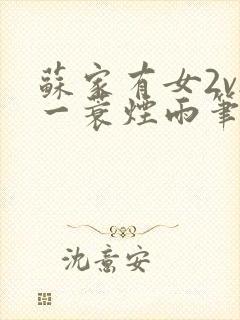 蘇家有女2v
一蓑煙雨筆
沈意安